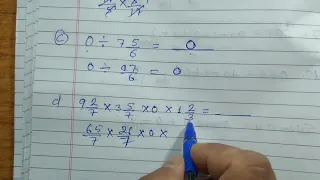 (c) 0 ÷ 7 5/6 = 0
0 ÷ 47/6 = 0
d 9 2/7 × 3 5/7 × 0 × 1 2/3 =
65/7 × 26/7 × 0 ×